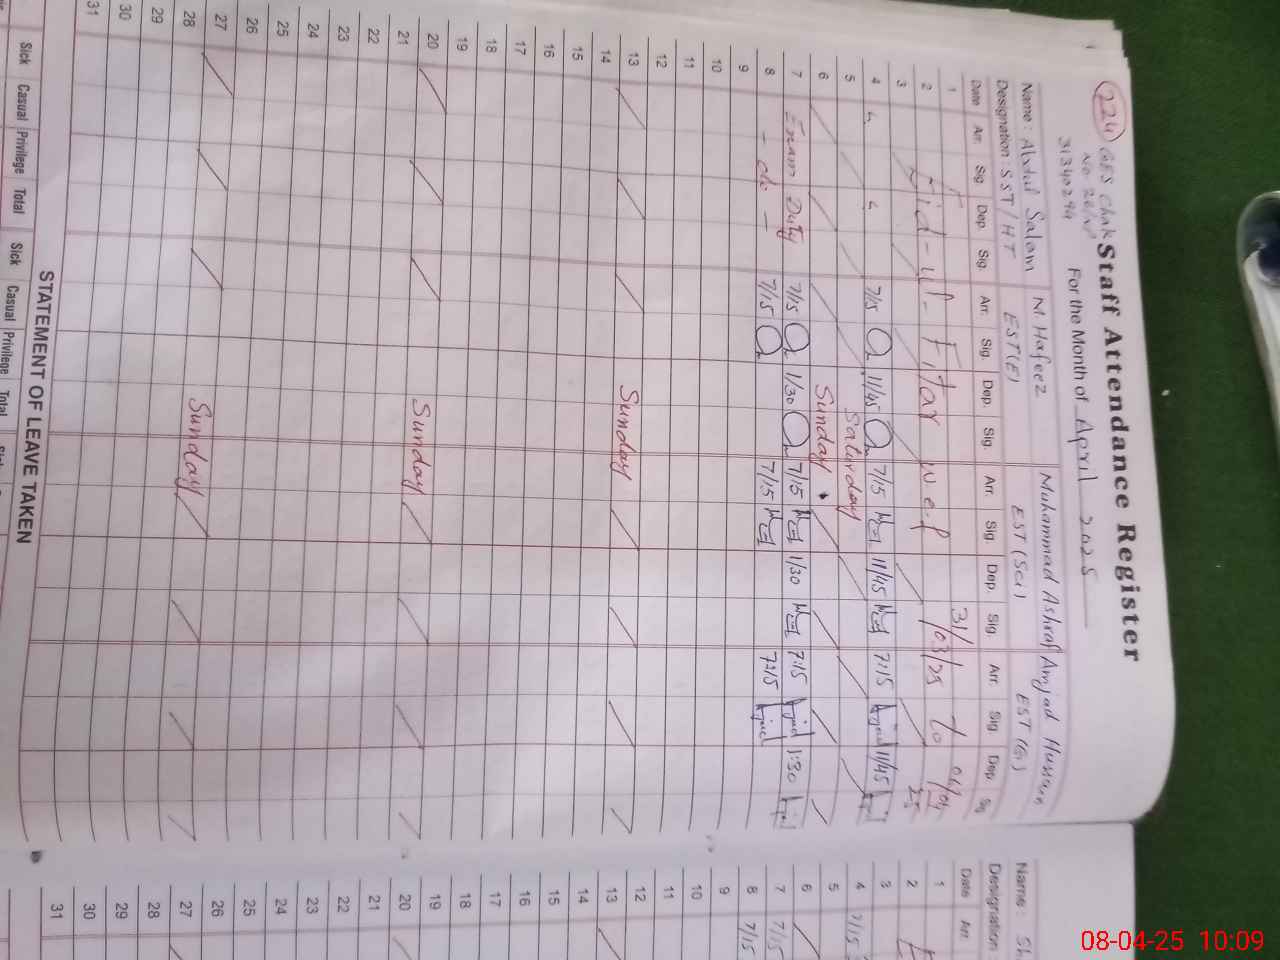 224 GES Chak Staff Attendance Register
31340294 For the Month of April 2025
Name : Abdul Salam M. Hafeez Muhammad Ashraf Amjad Hussain
Designation : SST/HT EST(E) EST(Sci) EST(G)
Date Arr. Sig. Dep. Sig. Arr. Sig. Dep. Sig. Arr. Sig. Dep. Sig. Arr. Sig. Dep. Sig.
1
2 Eid-ul-Fitar w.e.f 31/03/25 to
3
4 7/15 11/45 7/15 11/45 7:15 11/45
5 Saturday
6 Sunday
7 Exam Duty 7/15 1/30 7/15 1/30 7:15 1:30
8 - do - 7/15 7/15 7:15
9
10
11
12
13 Sunday
14
15
16
17
18
19
20 Sunday
21
22
23
24
25
26
27 Sunday
28
29
30
31
STATEMENT OF LEAVE TAKEN
Sick Casual Privilege Total Sick Casual Privilege Total
Name : Sh
Designation :
Date Arr.
1
2
3
4 7/15
5
6
7 7/15
8 7/15
9
10
11
12
13
14
15
16
17
18
19
20
21
22
23
24
25
26
27
28
29
30
31
08-04-25 10:09